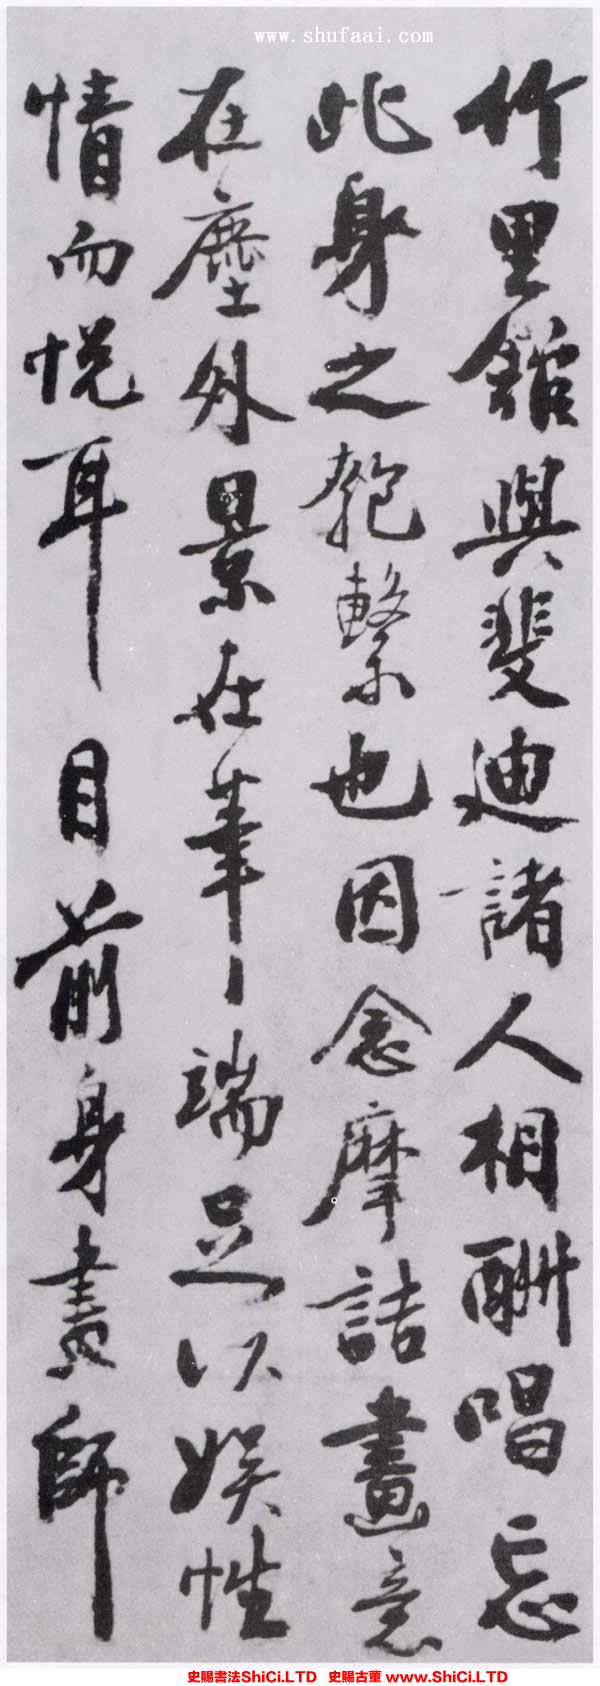 www.shufaai.com
竹里館與斐迪諸人相酬唱忘
此身之匏繫也因念摩詰畫意
在塵外景在筆端足以娛性
情而悅耳目前身畫師
史賜書法ShiCi.LTD 史賜古董 www.ShiCi.LTD